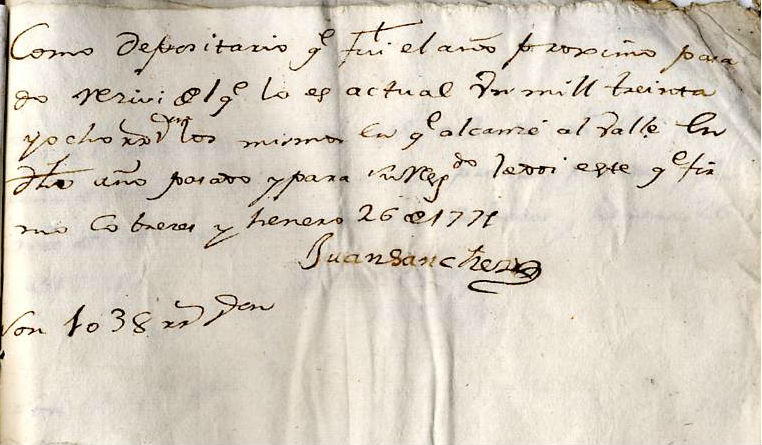 Como depositario q.e fui el año proximo pasa
do rezivi del q.e lo es actual Un mill treinta
y ocho rr.s v.on los mismos en q.e alcanzé al valle En
dho año pasado y para su Resg.do le doi este q.e fir
mo Cobreres y henero 26 de 1771
Juan Sanchez
Son 1038 rr.s von